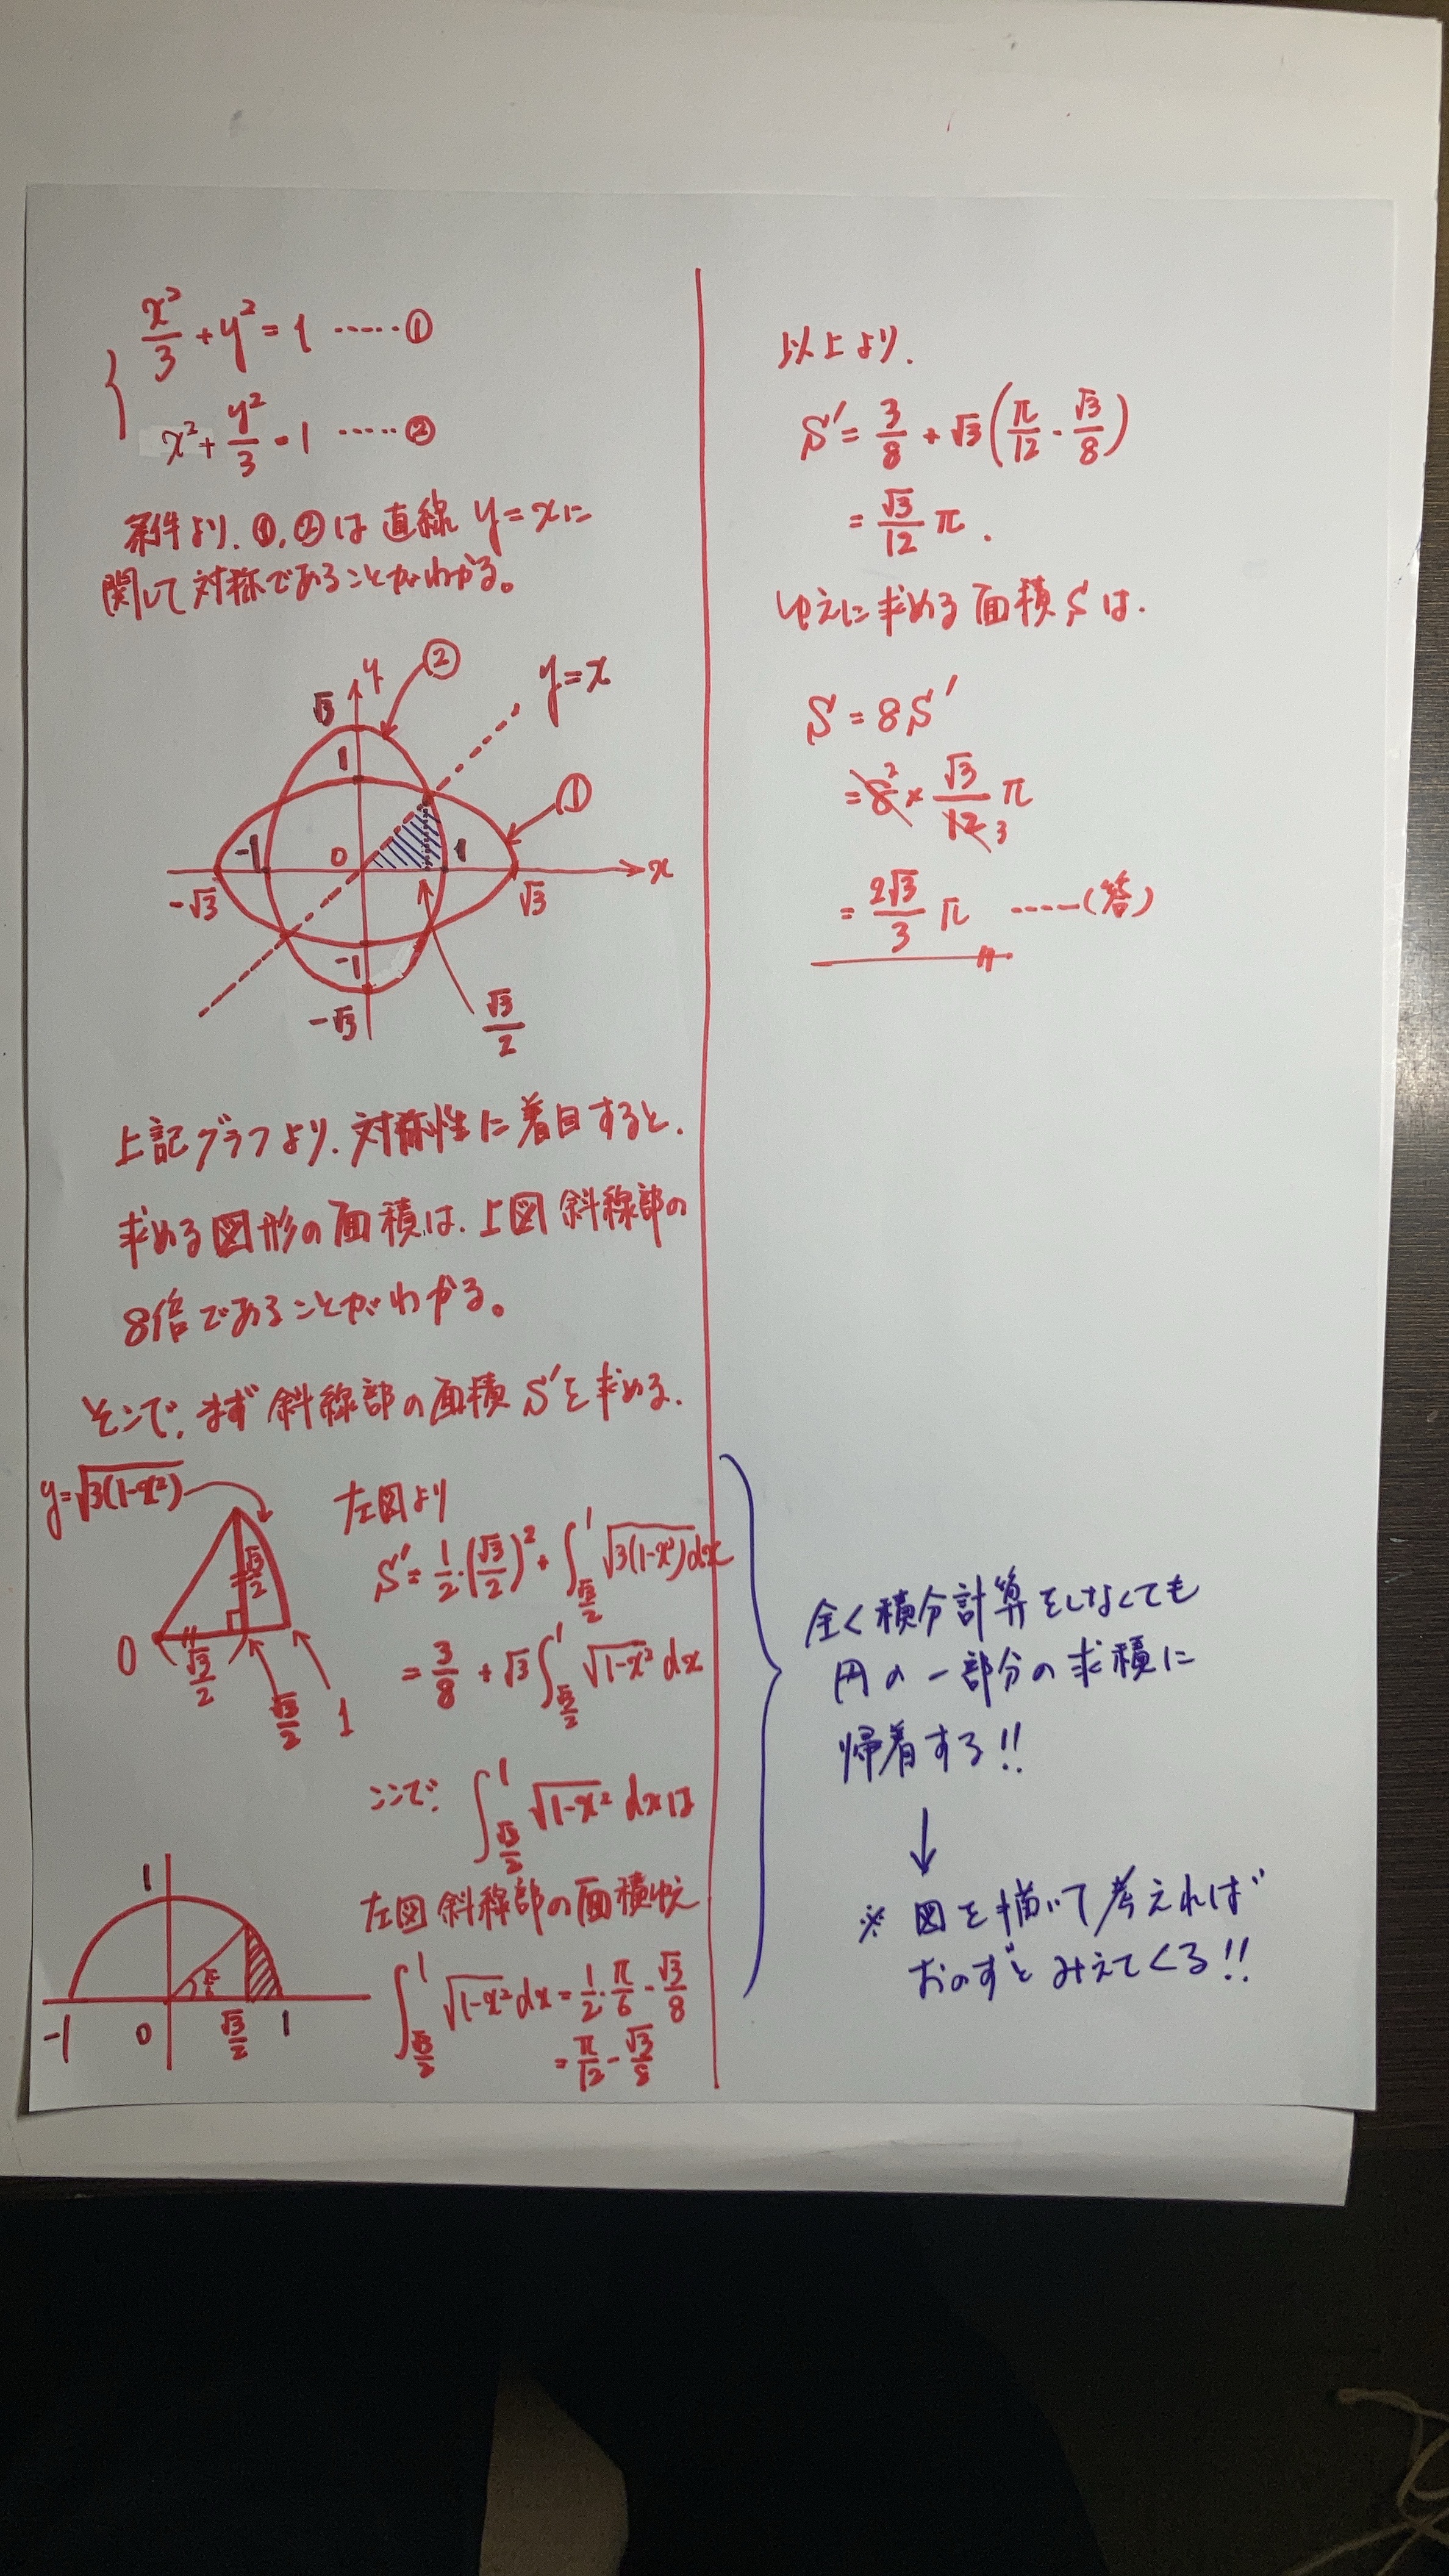 x²/3 + y² = 1 ‥‥‥①
x² + y²/3 = 1 ‥‥‥②
条件より、①、②は直線 y=xに
関して対称であることがわかる。
②
y
y=x
√3
1
①
-1
0
1
x
-√3
√3
-1
-√3
√3/2
上記グラフより、対称性に着目すると、
求める図形の面積は、上図斜線部の
8倍であることがわかる。
そこで、まず斜線部の面積S'を求める。
y=√3(1-x²)
左図より
S'= 1/2・(√3/2)² + ∫[√3/2→1] √3(1-x²) dx
√3/2
0
√3/2
√3/2
1
= 3/8 + √3 ∫[√3/2→1] √1-x² dx
ここで、∫[√3/2→1] √1-x² dxは
左図斜線部の面積ゆえ
1
π/6
-1
0
√3/2
1
∫[√3/2→1] √1-x² dx = 1/2・π/6 - √3/8
= π/12 - √3/8
以上より、
S' = 3/8 + √3(π/12 - √3/8)
= √3/12 π.
ゆえに求める面積Sは、
S = 8S'
= 8 2 × √3/12 3 π
= 2√3/3 π ‥‥‥(答)
全く積分計算をしなくても
円の一部分の求積に
帰着する!!
↓
※ 図を描いて考えれば
おのずとみえてくる!!